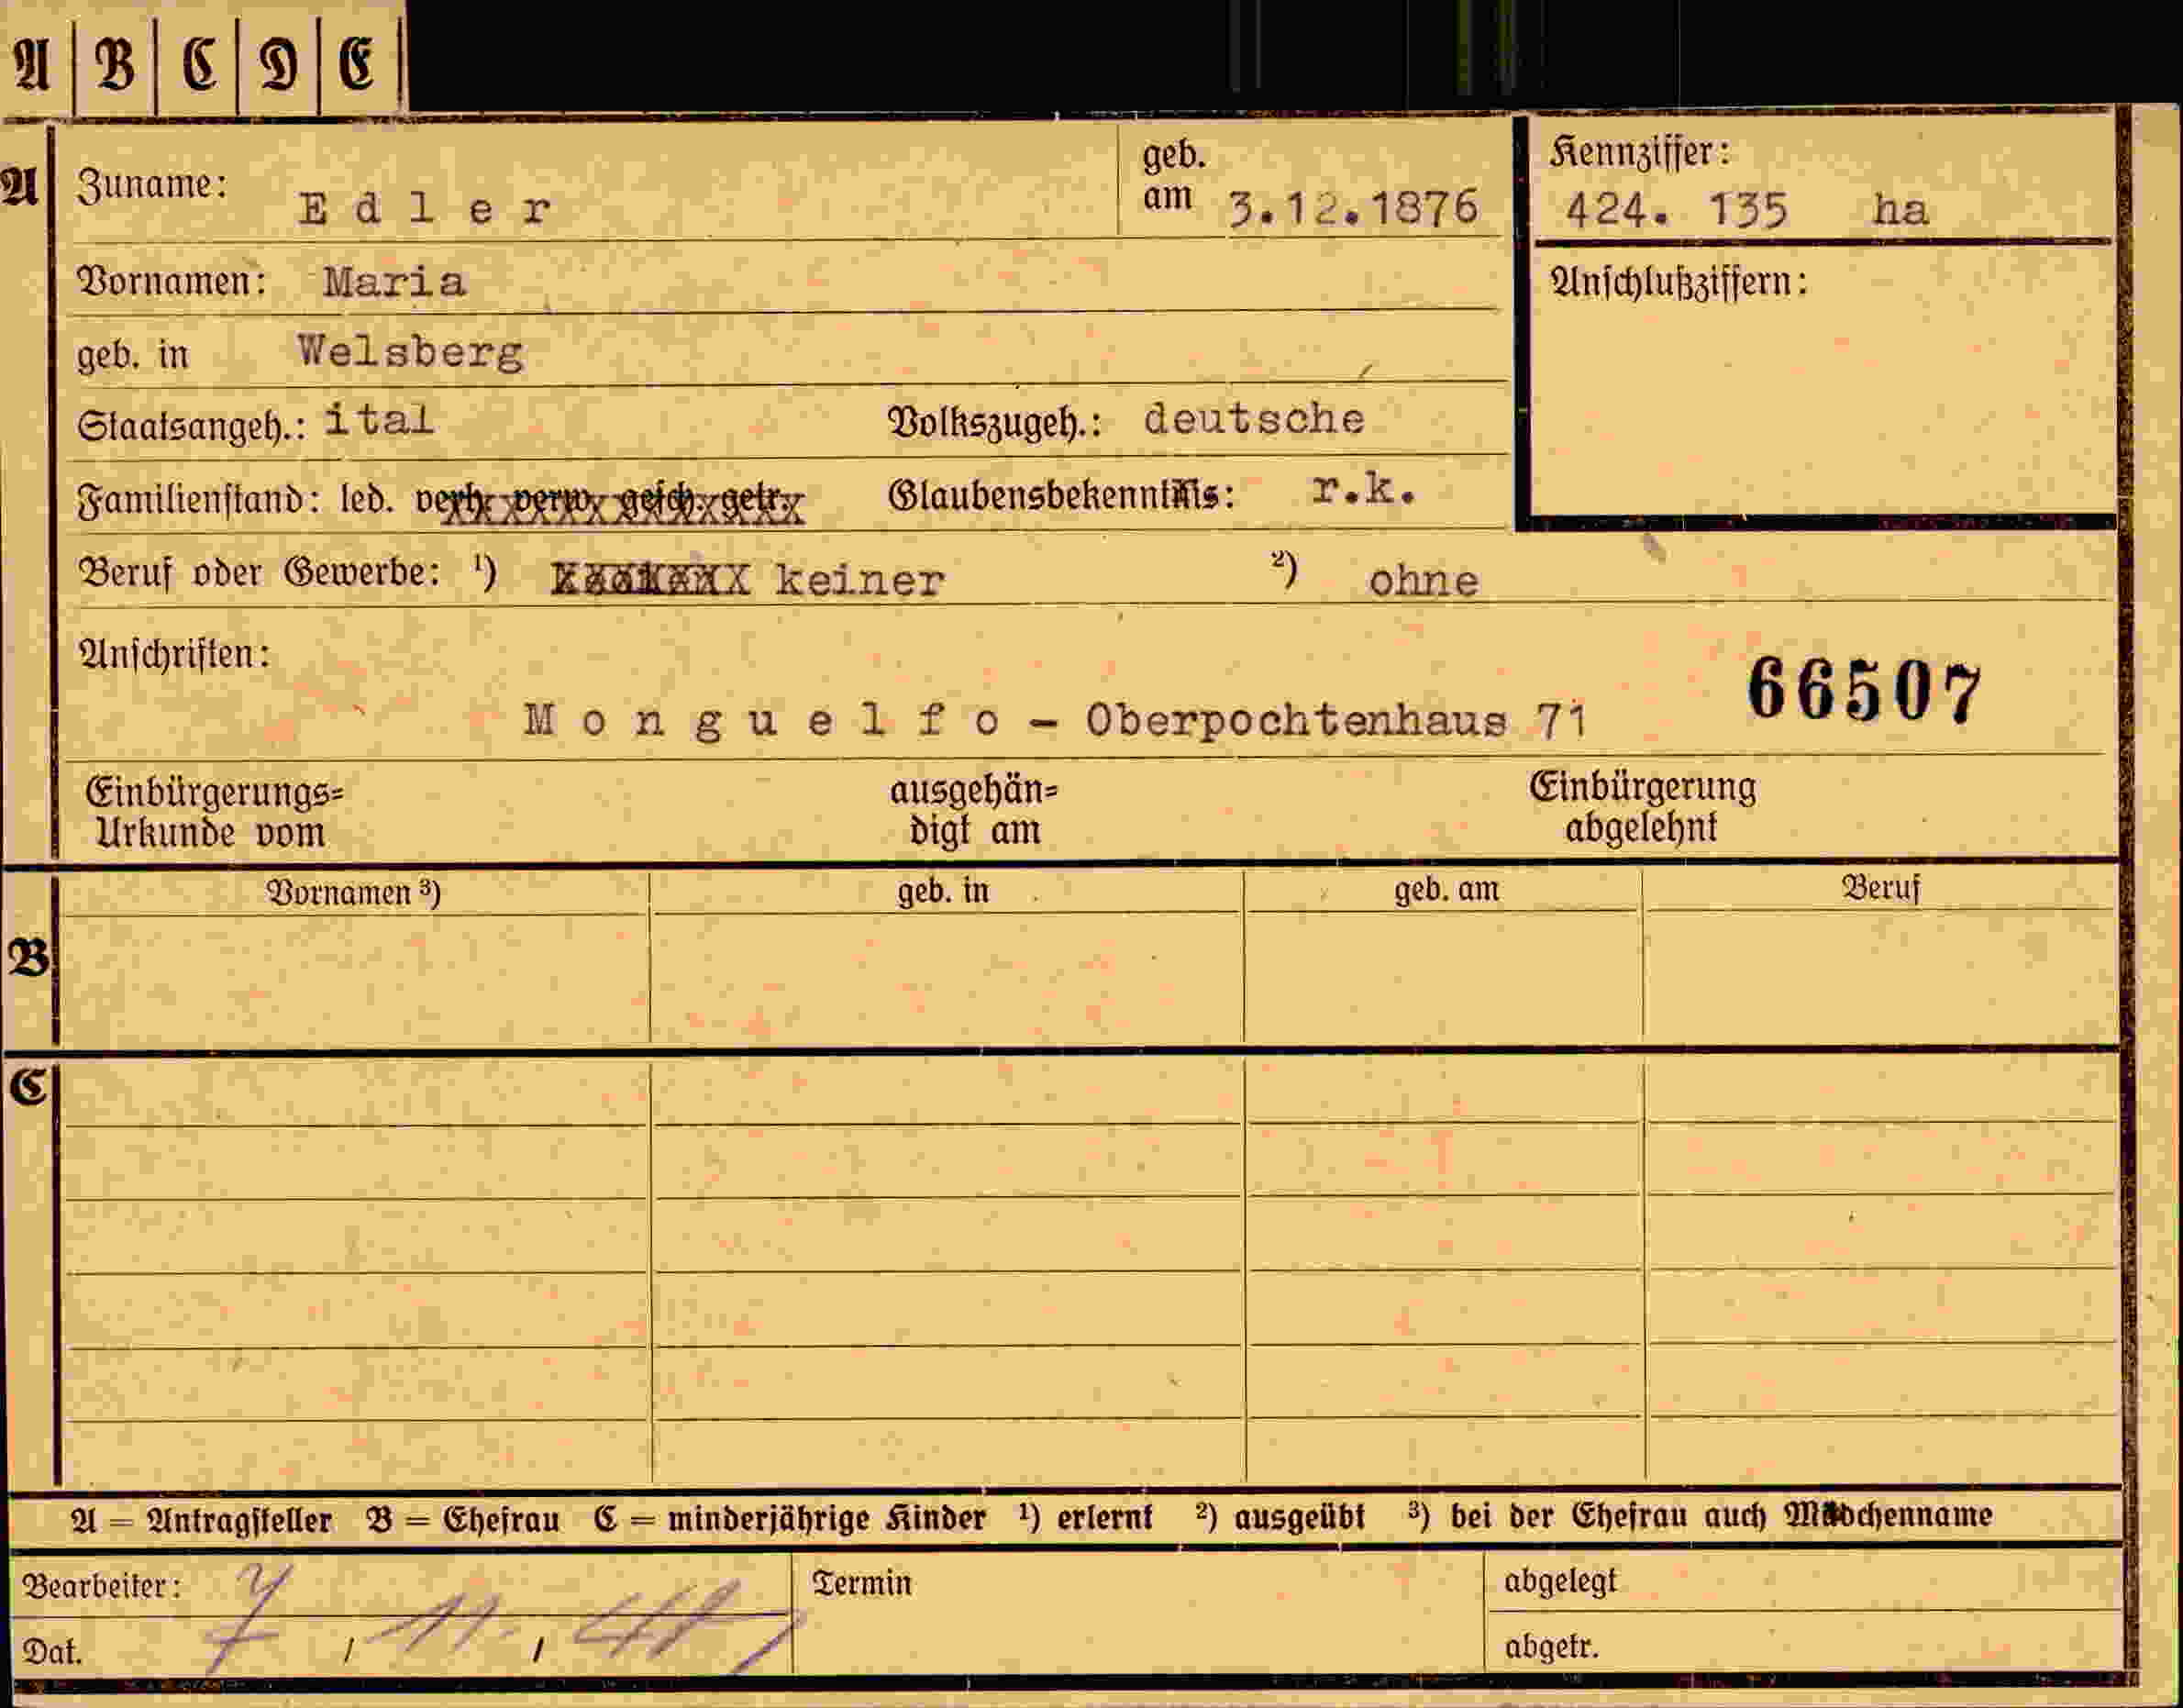 A B C D E
A Zuname: Edler geb. am 3.12.1876 Kennziffer: 424. 135 ha
Vornamen: Maria Anschlußziffern:
geb. in Welsberg
Staatsangeh.: ital Volkszugeh.: deutsche
Familienstand: led. verh. verw. gesch. getr. Glaubensbekenntnis: r.k.
Beruf oder Gewerbe: ¹) keiner ²) ohne
Anschriften:
Monguelfo - Oberpochtenhaus 71 66507
Einbürgerungs= ausgehän= Einbürgerung
Urkunde vom digt am abgelehnt
Vornamen ³) geb. in geb. am Beruf
B
C
A = Antragsteller B = Ehefrau C = minderjährige Kinder ¹) erlernt ²) ausgeübt ³) bei der Ehefrau auch Mädchenname
Bearbeiter: Termin abgelegt
Dat. 7 / 11. / abgetr.